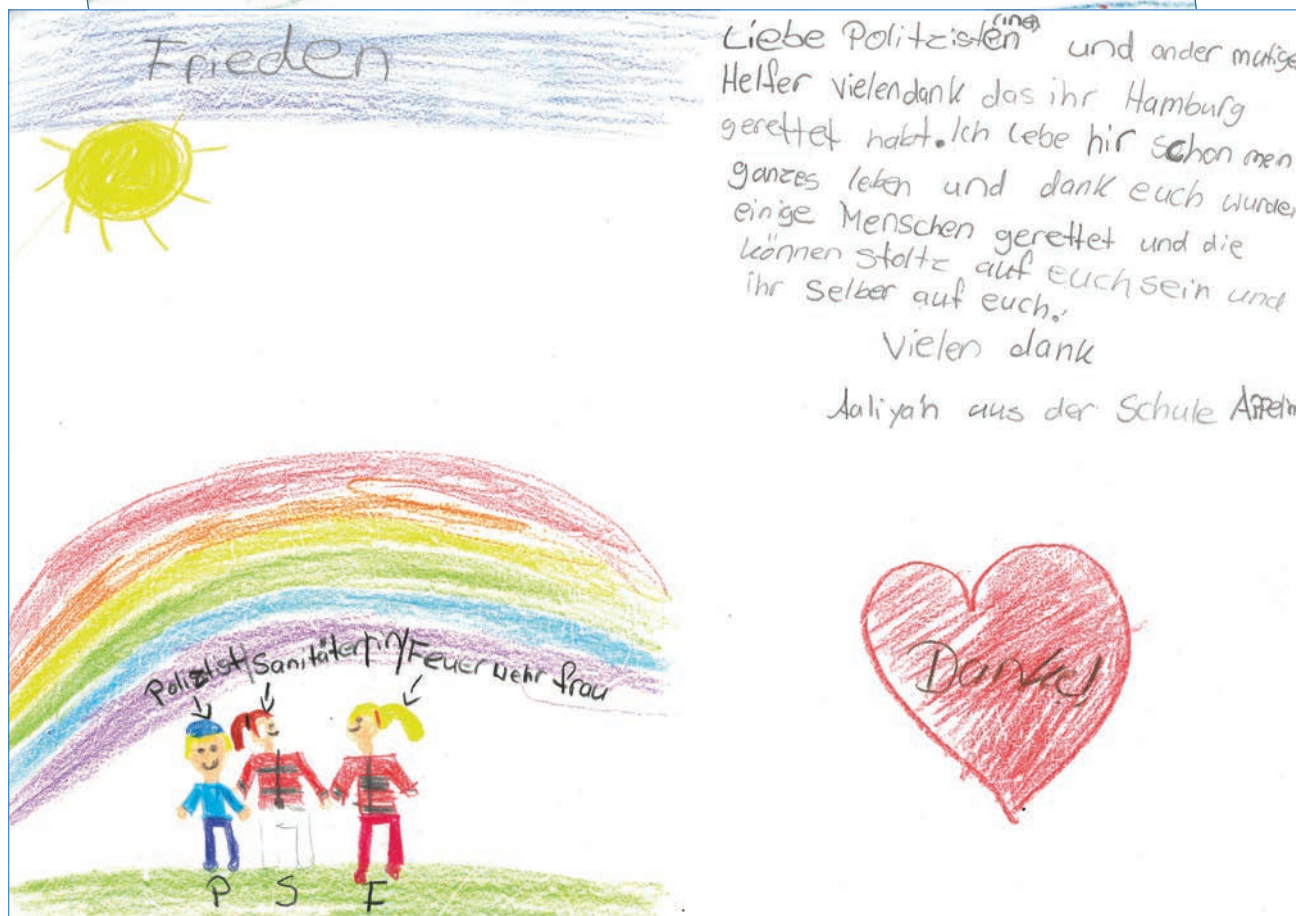 Frieden
Liebe Politzisten rinen und ander mutige
Helfer vielendank das ihr Hamburg
gerettet habt. Ich lebe hir schon men
ganzes leben und dank euch wurden
einige Menschen gerettet und die
können stoltz auf euch sein und
ihr selber auf euch.
Vielen dank
Aaliyah aus der Schule
Polizist/Sanitäterrin/Feuer wehr frau
P S F
Danke!